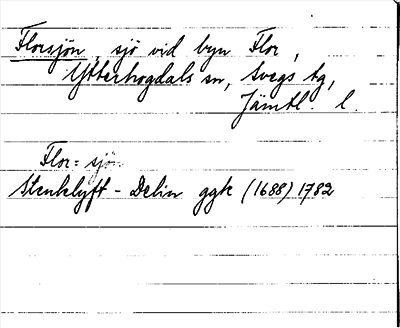 Florsjön, sjö vid byn Flor,
Ytterhogdals sn, Svegs tg,
Jämtl. l.
Flor= sjön
Stenklyft - Delin ggk (1688) 1782